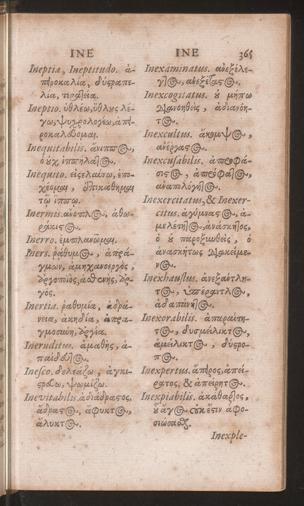 INE
Ineptia, Ineptitudo. ἀ-
πειροκαλία, δυσραπε-
λία,
Ineptio. ὑθλέω, ὕθλους λέ-
γω, ψυχρολογέω, ἀπει-
ροκαλεύομαι.
Inequitabilis. ἄνιππος,
οὐχ ἱππηλατὸς.
Inequito. εἰσελαύνω, ἐπο-
χέομαι, ἐπικάθημαι
τῷ ἵππῳ.
Inermis. ἄνοπλος, ἀθω-
ράκιστος.
Inerro. ἐμπλανῶμαι.
Iners. ῥάθυμος, ἀπρά-
γμων, ἀμηχανοεργὸς,
ἀργοποιὸς, ἀσθενὴς, ἀρ-
γός.
Inertia. ῥαθυμία, ἀδρά-
νεια, ἀκηδία, ἀπρα-
γμοσύνη, ἀργία.
Ineruditus. ἀμαθὴς, ἀ-
παίδευτος.
Inesco. δελεάζω, ἀγκι-
στρεύω, ψωμίζω.
Inevitabilis. ἀδιάδραστος,
ἄδραστος, ἄφυκτος,
ἄλυκτος.
INE 365
Inexaminatus. ἀνεξέλε-
γκτος, ἀνεξέταστος.
Inexcogitatus. ὁ μήπω
διανοηθεὶς, ἀδιανόη-
τος.
Inexcultus. ἄκομψος,
ἀνέργαστος.
Inexcusabilis. ἀπροφά-
σιστος, ἀπροφάσιστος,
ἀναπολόγητος.
Inexercitatus, & Inexer-
citus. ἀγύμναστος, ἀ-
μελέτητος, ἀνάσκητος,
ὁ παροξυνθεὶς, ὁ
ἀνασκήτως διακείμε-
νος.
Inexhaustus. ἀνεξάντλη-
τος,
ἀδαπάνητος.
Inexorabilis. ἀπαραίτη-
τος, δυσμείλικτος,
ἀμείλικτος, δύστρο-
πος.
Inexpertus. ἄπειρος, ἀπεί-
ρατος, & ἀπείρητος.
Inexpiabilis. ἀκάθαρτος,
οὗ ἄγος οὐκ ἔστιν ἀφο-
σιώσασθαι.
Inexple-